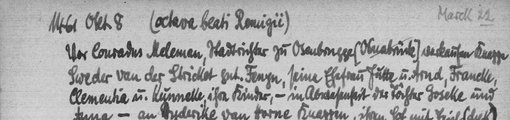 1461 Okt 8 (octava beati Remigii) Marck 22
Vor Conradus Meleman, Stadtrichter zu Osenbrugge [Osnabrück] verkaufen Knappe
Sweder van der Stricket gnt. Fengn, seine Ehefrau Jutte u. Arnd, Francke,
Clementia u. Kunnelle, ihre Kinder, – in Abwesenheit der Töchter Goseke und
– an Ryderike van Horne Knappen,